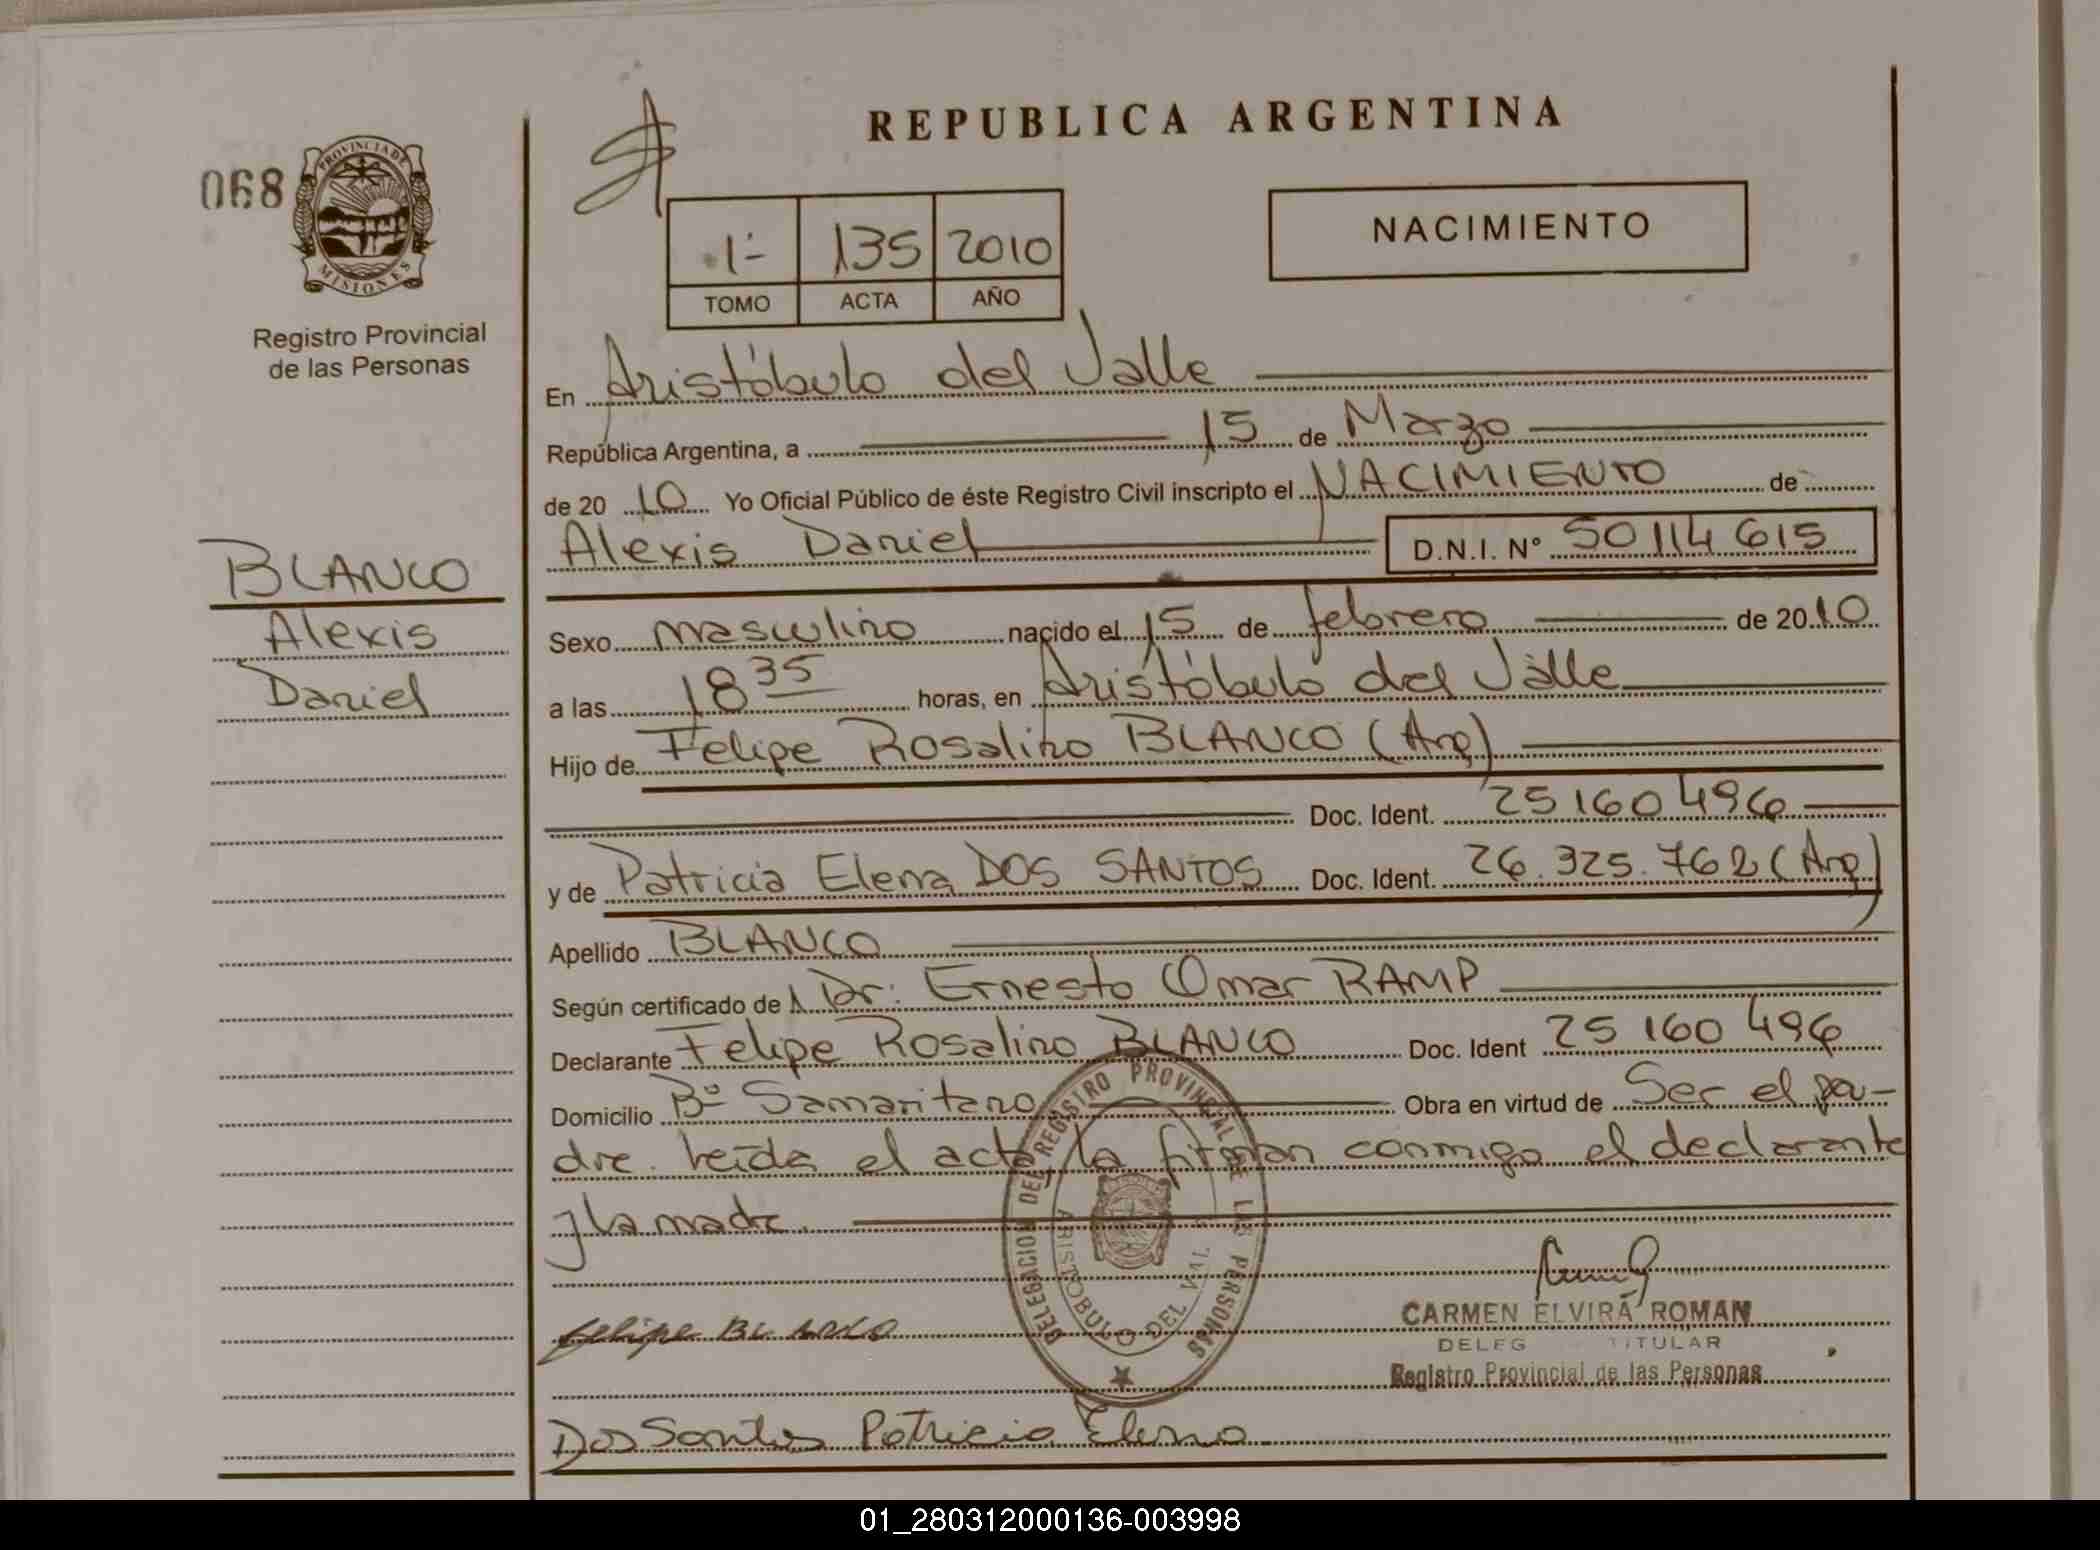 REPUBLICA ARGENTINA
068
PROVINCIA DE
MISIONES
Registro Provincial
de las Personas
NACIMIENTO
1- 135 2010
TOMO ACTA AÑO
En Aristóbulo del Valle
República Argentina, a 15 de Marzo
de 20 10 Yo Oficial Público de éste Registro Civil inscripto el NACIMIENTO de
Alexis Daniel D.N.I. Nº 50114615
BLANCO
Alexis
Daniel
Sexo masculino nacido el 15 de febrero de 2010
a las 18 35 horas, en Aristóbulo del Valle
Hijo de Felipe Rosalino BLANCO (Arg)
Doc. Ident. 25160496
y de Patricia Elena DOS SANTOS Doc. Ident. 26.325.762 (Arg)
Apellido BLANCO
Según certificado de Dr. Ernesto Omar RAMP
Declarante Felipe Rosalino BLANCO Doc. Ident 25160496
Domicilio Bº Samaritano Obra en virtud de Ser el pa-
dre. leída el acta la firman conmigo el declarante
y la madre.
DELEGACION DEL REGISTRO PROVINCIAL DE LAS PERSONAS
ARISTOBULO DEL VAL
CARMEN ELVIRA ROMAN
DELEG TITULAR
Registro Provincial de las Personas
felipe BLANCO
Dos Santos Patricia Elena
01_280312000136-003998